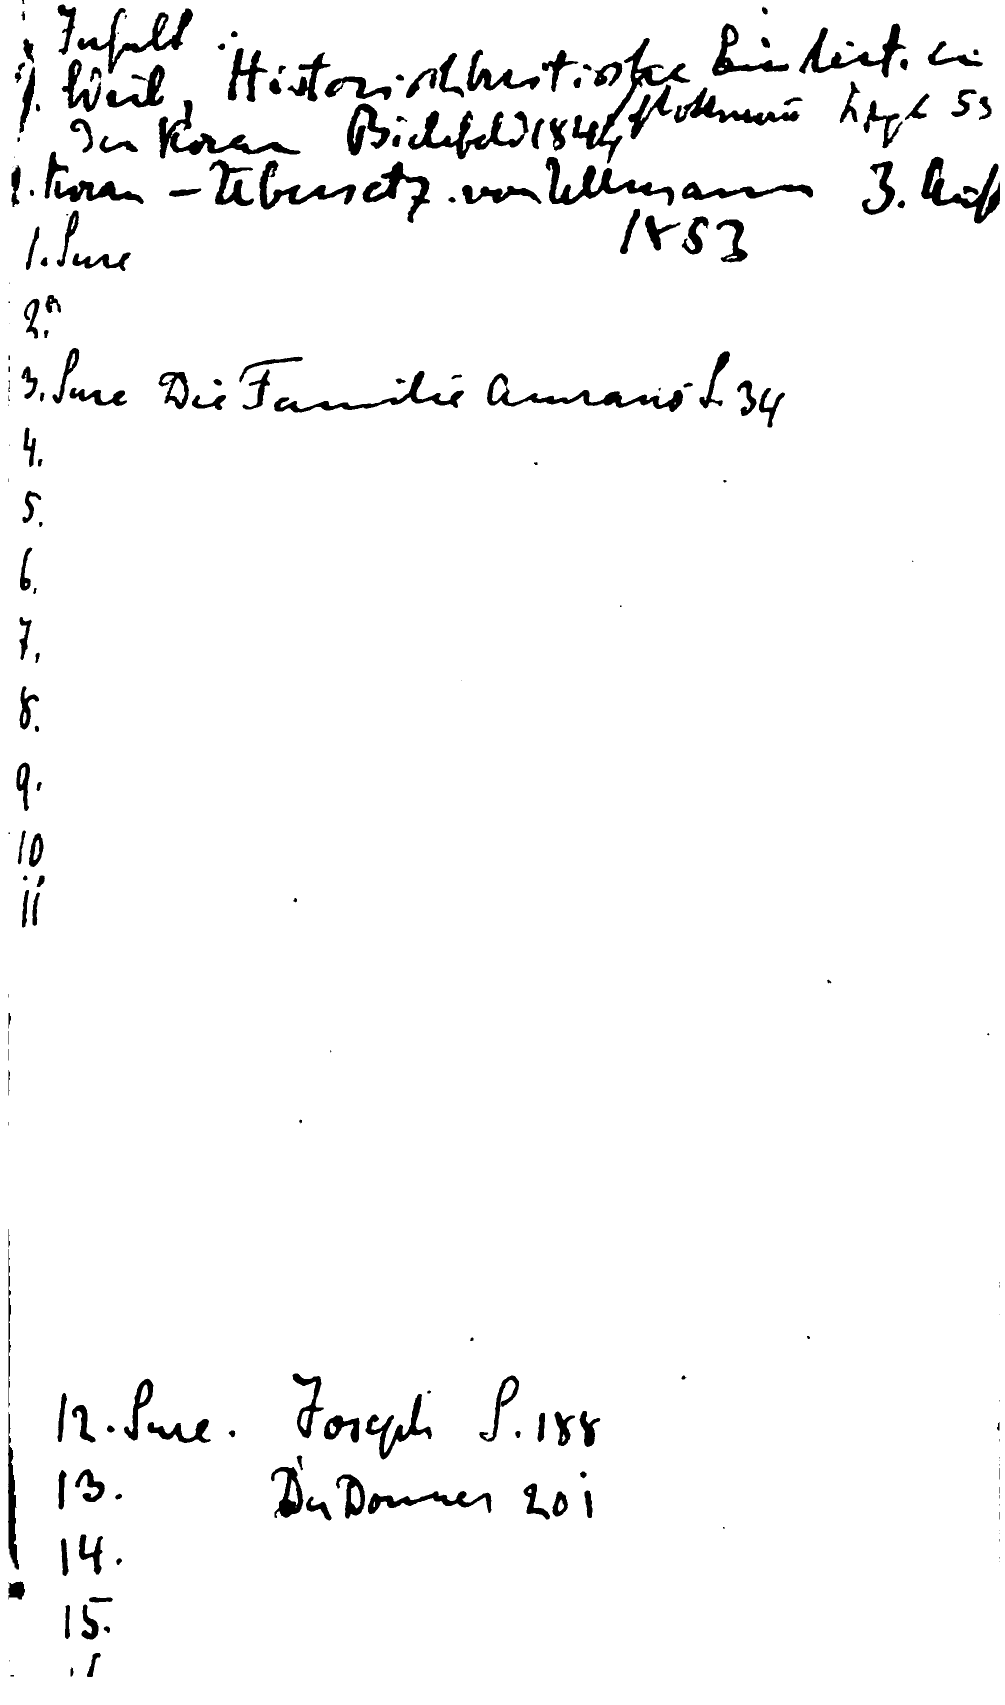 Inhalt :
1. Weil, Historischkritische Einleit. in
den Koran Bielefeld 1844 53
2. Koran – Übersetz. von Ullmann 3. Aufl
1853
1. Sure
2. "
3. Sure Die Familie Amrans S. 34
4.
5.
6.
7.
8.
9.
10
11
12. Sure. Joseph S. 188
13. Der Donner 201
14.
15.